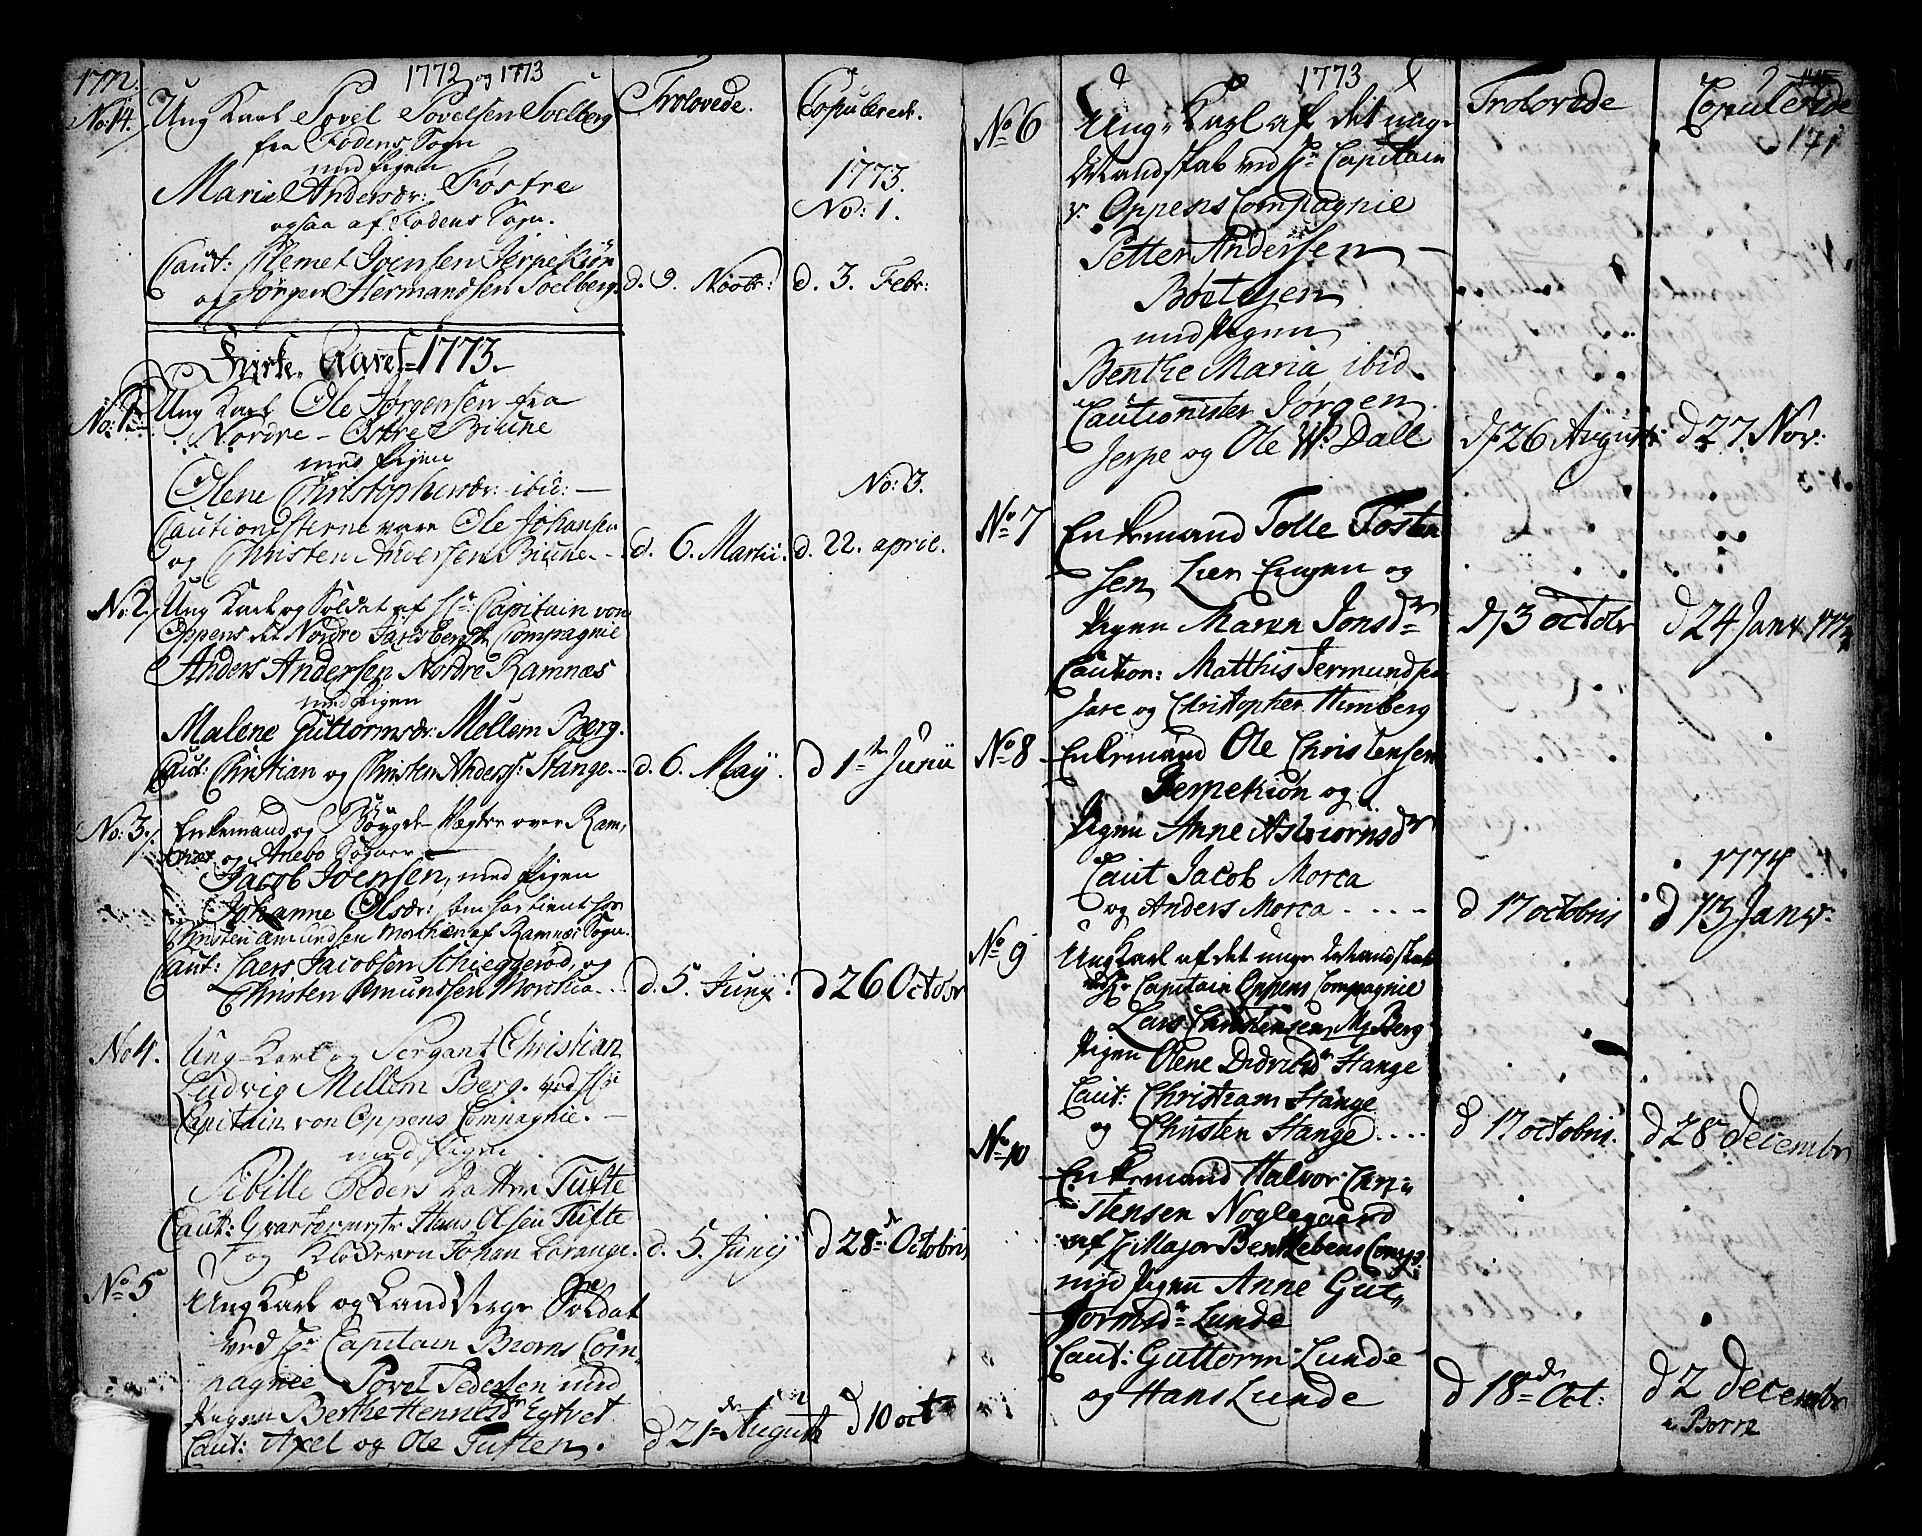 1772 og 1773
1772.
No: 14. Ung Karl Povel Povelsen Soelberg
fra Bodens Sogn
med Pigen
Marie Andersdr: Føstre
ogsaa af Bodens Sogn.
Caut: Clemet Joensen Jerpekiøn
og Jørgen Hermandsen Soelberg.
Trolovede.
d. 9. Novbr:
Copulerede.
1773.
No: 1.
d. 3. Febr:
Kirke Aaret 1773.
No: 1. Ung Karl Ole Jørgensen fra
Nordre - Østre Biune
med Pigen
Olene Christophersdr: ibid: —
Cautionisterne vare Ole Johansen
og Christen Andersen Biune. -
d. 6. Martii.
No: 3.
d. 22. april.
No: 2. Ung Karl og Soldat af Hr: Capitain von
Oppens det Nordre Jarlsbergske Compagnie
Anders Andersen Nordre Ramnæs
med Pigen
Malene Guttormsdr: Mellem Berg.
Caut: Christian og Christen Anderss: Stange. -
d. 6. Maij.
d 1ste Junii
No: 3. Enkemand og Bøygde-Vægter over Ram-
næs og Anebo Sogner —
Jacob Joensen, med Pigen
Johanne Olsdr: som har tient hos
Christen Amundsen Morchæn af Ramnæs Sogn.
Caut: Laers Jacobsen Schieggerød, og
Christen Amundsen Morchæ. -
d. 5. Junij.
d 26 Octobr
No 4. Ung-Karl og Sergant Christian
Ludvig Mellem Berg. ved Hr:
Capitain von Oppens Compagnie. —
med Pigen
Sibille Peders Datter Tufte
Caut: Qvartermestr Hans Olsen Tufte
og Klokkeren Johan Lorange.
d. 5. Junij
d 28de Octobris
No 5 Ung Karl og Land Værge Soldat
ved Hr Capitain Biørns Com-
pagnie Povel Pedersen med
Pigen Berthe Hennesdr Egtvet
Caut: Axel og Ole Tuften.
d 21de Augusti
d 10 oct
1773
171
Trolovede
Copulerede
No 6 Ung Karl af det unge
Mandskab ved Hr Capitain
v. Oppens Compagnie
Petter Andersen —
Bøetejen
med Pigen
Benthe Maria ibid.
Cautionister Jørgen
Jerpe og Ole W. Dall
d 26 August:
d 27 Nov:
No 7 Enkemand Tolle Tosten
sen Lier Engen og
Pigen Maren Jonsdr
Caution: Matthis Jermundsen
Jare og Christopher Himberg
d 3 octobr
d 24 Janv 1774
No 8 Enkemand Ole Christensen
Jerpekiøn og
Pigen Anne Asbiornsdr
Caut Jacob Morca
og Anders Morca . . . . -
d 17 octobris
1774
d 13 Janv.
No 9 Ung Karl af det unge Mandskab
ved Hr Capitain Oppens Compagnie
Lars Christensen M. Berg
Pigen Olene Didrichsdr Stange
Caut: Christian Stange
og Christen Stange . . . .
d 17 octobris.
d 28 Decembr
No 10
Enkemand Halvor Chri-
stensen Noglegaard
af Hr Major Benzebens Comp:
med Pigen Anne Gut-
tormsdr Lunde
Caut: Guttorm Lunde
og Hans Lunde
d 18de Oct:
d 2 Decembr
i Borre